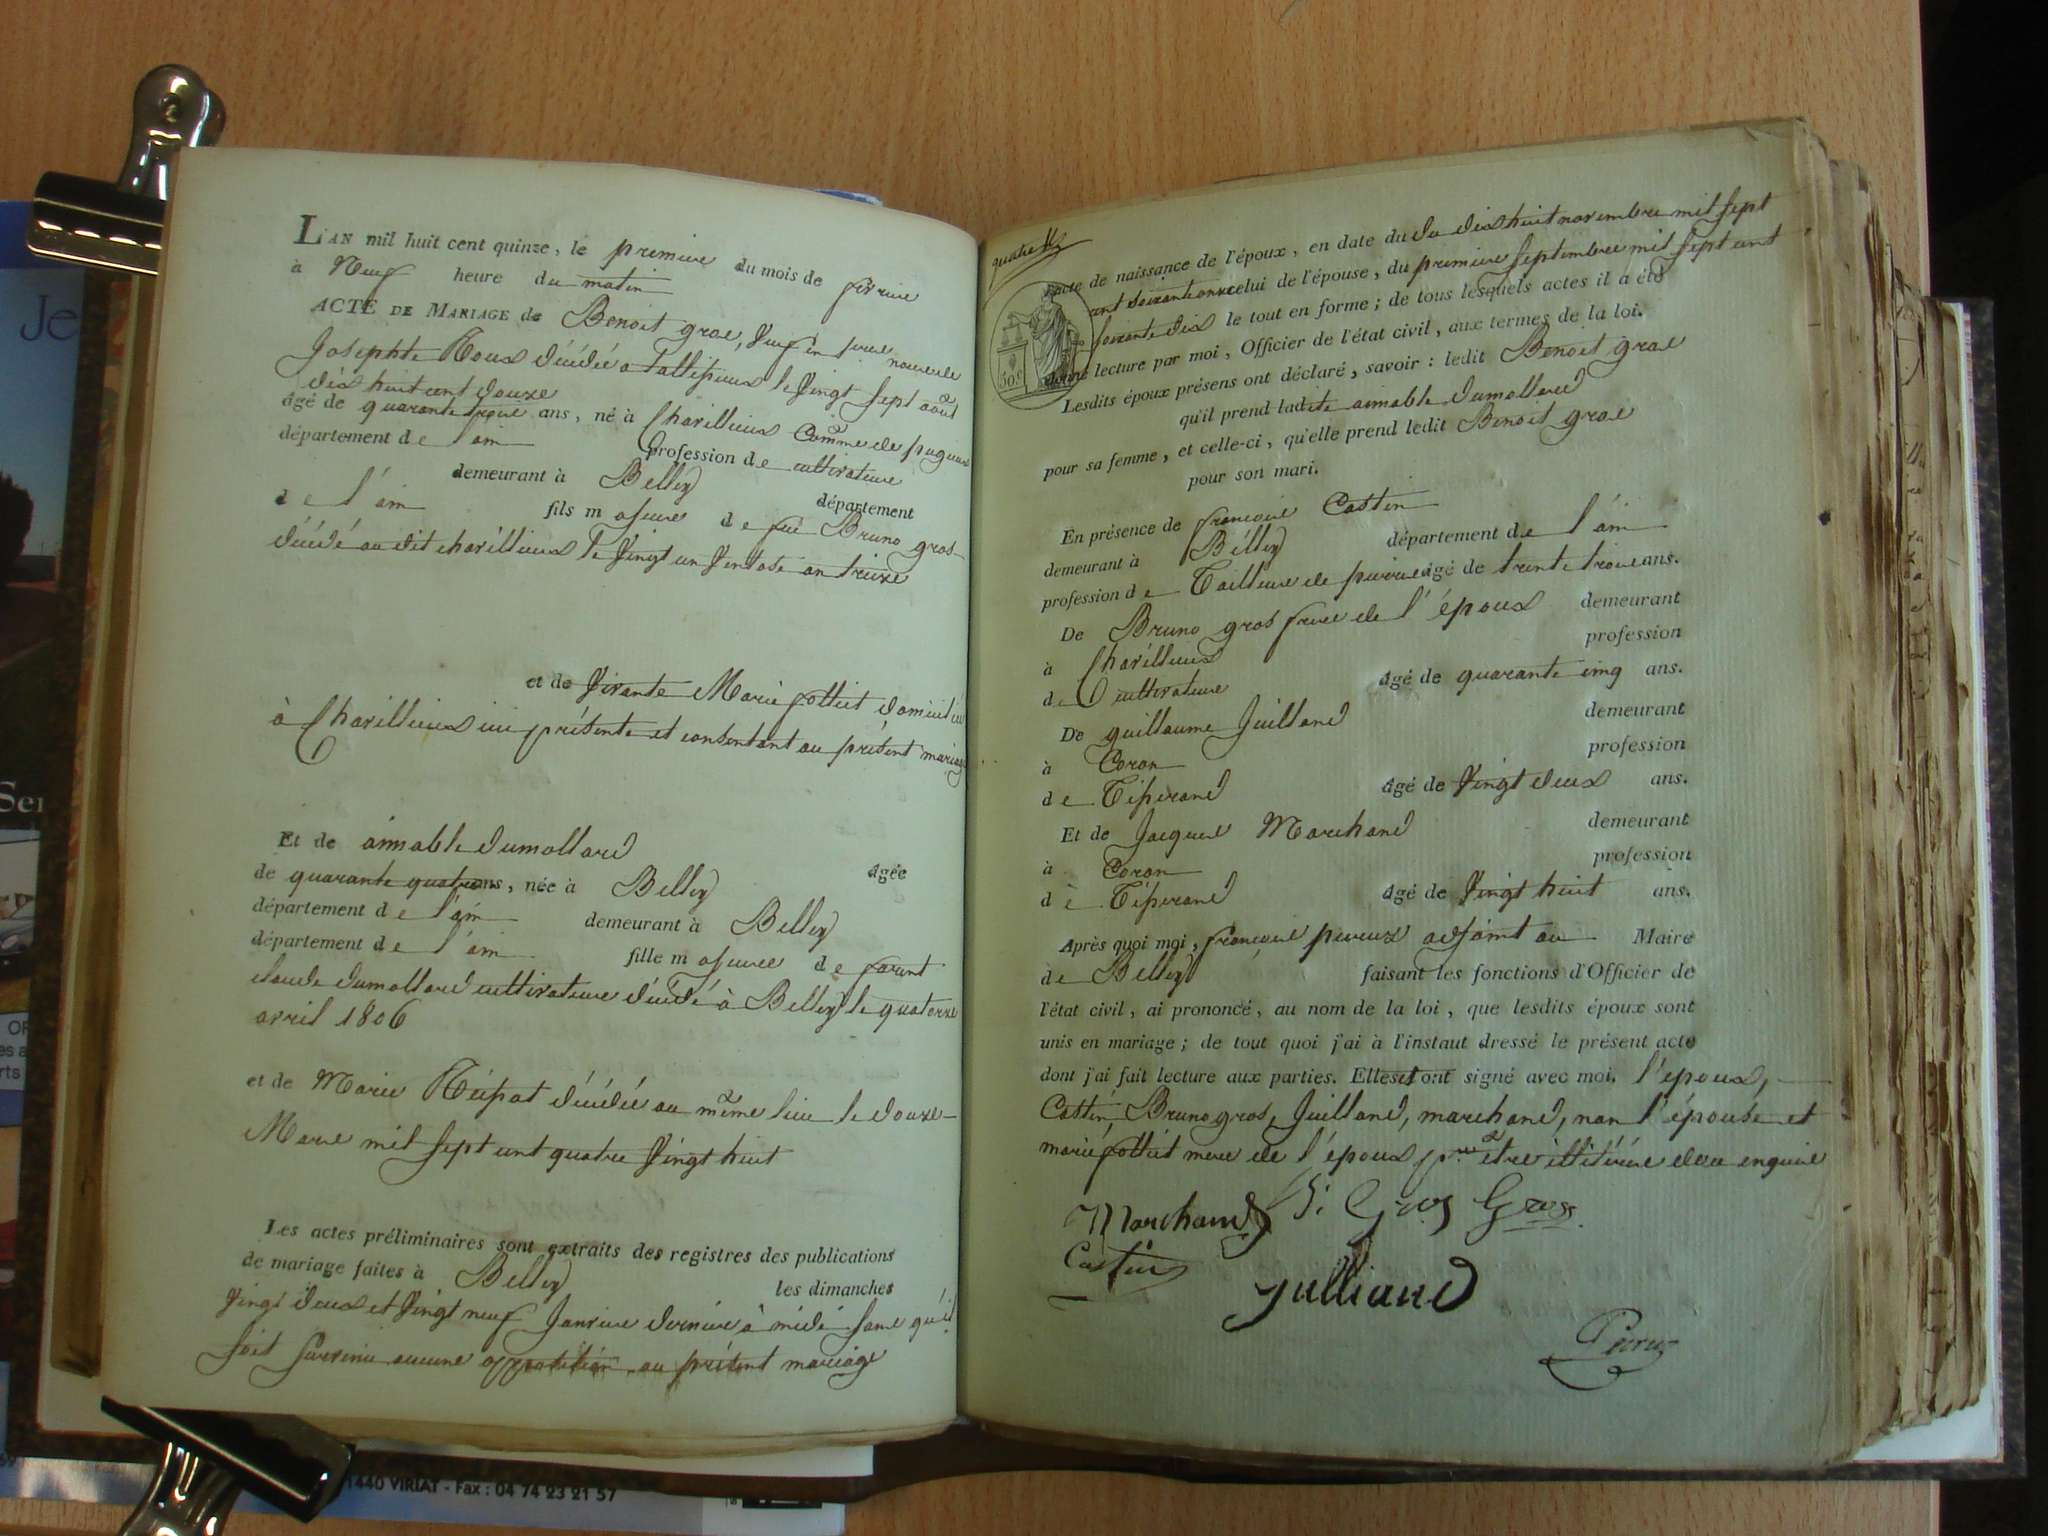 L'AN mil huit cent quinze, le premier du mois de fevrier
à Neuf heure du matin
ACTE DE MARIAGE de Benoit gros, Veuf en
Josephte Roux décédée a Tallissieux le Vingt sept août
dix huit cent douze
âgé de quarante trois ans, né à Charillieux Com̃me de pugieux
département de l'ain profession de cultivateur
demeurant à Belley département
de l'ain fils majeur de feu Bruno gros
décédé au dit charillieux le Vingt un Ventose an treize
et de Vivante Marie pottiet domiciliée
à Charillieux ici présente et consentant au présent mariage
Et de aimable dumollard agée
de quarante quatre ans, née à Belley
département de l'ain demeurant à Belley
département de l'ain fille majeure de
claude dumollard cultivateur décédé à Belley le quatorze
avril 1806
et de Marie Récipat décédée au même lieu le douze
Mars mil sept cent quatre Vingt huit
Les actes préliminaires sont extraits des registres des publications
de mariage faites à Belley les dimanches
Vingt deux et Vingt neuf Janvier dernier à midi sans qu'il
soit survenu aucune opposition au présent mariage
quatre
50 c
acte de naissance de l'époux, en date du du dix huit novembre mil sept
cent soixante onze celui de l'épouse, du premier septembre mil sept cent
soixante dix le tout en forme ; de tous lesquels actes il a été
donné lecture par moi, Officier de l'état civil, aux termes de la loi.
Lesdits époux présens ont déclaré, savoir : ledit Benoit gros
qu'il prend ladite aimable dumollard
pour sa femme, et celle-ci, qu'elle prend ledit Benoit gros
pour son mari.
En présence de françois Castin
demeurant à Belley département de l'ain
profession de Tailleur de pierre âgé de trente trois ans.
De Bruno gros frere de l'époux demeurant
à Charillieux profession
de Cultivateur âgé de quarante cinq ans.
De guillaume Juilland demeurant
à Coron profession
de Tisserand âgé de Vingt deux ans.
Et de Jacques Marchand demeurant
à Coron profession
de Tisserand âgé de Vingt huit ans.
Après quoi moi, françois perrux adjoint au Maire
de Belley faisant les fonctions d'Officier de
l'état civil, ai prononcé, au nom de la loi, que lesdits époux sont
unis en mariage ; de tout quoi j'ai à l'instant dressé le présent acte
dont j'ai fait lecture aux parties. Elles et ont signé avec moi, l'époux,
Castin, Bruno gros, Juilland, marchand, non l'épouse et
marie pottiet mere de l'époux pour être illitérées de ce enquis
Marchand B: Gros Gros
Castin
Julliand
Perrux
1440 VIRIAT - Fax : 04 74 23 21 57